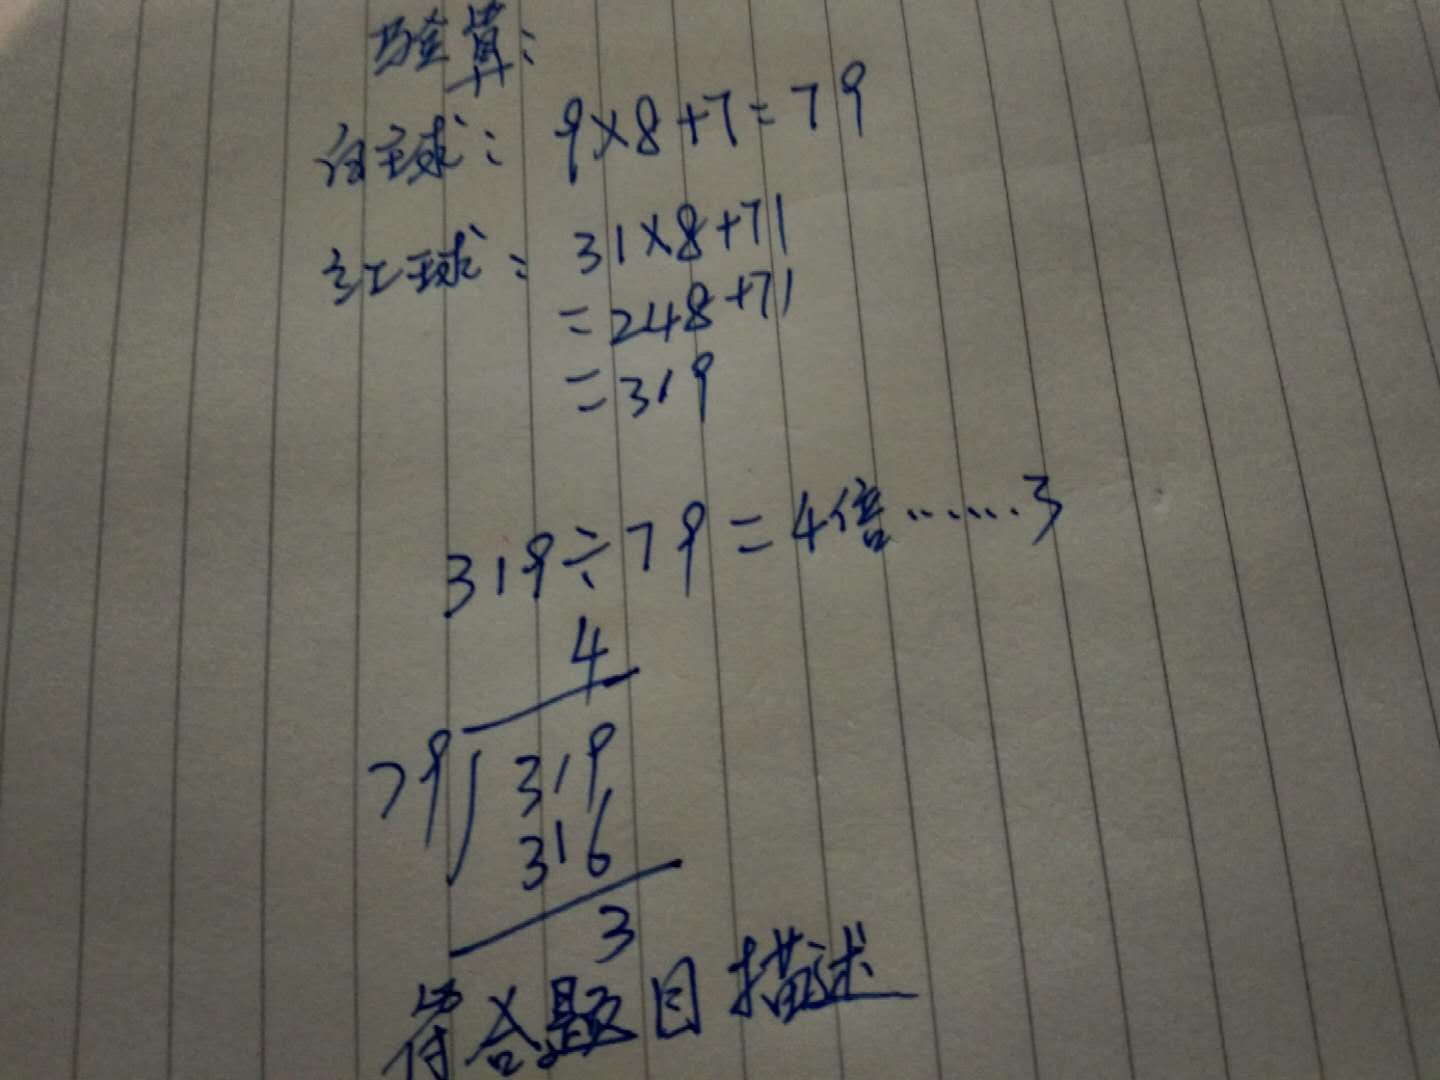 验算:
白球: 9×8+7=79
红球: 31×8+71
=248+71
=319
319÷79=4倍……3
4
79 319
316
3
符合题目描述